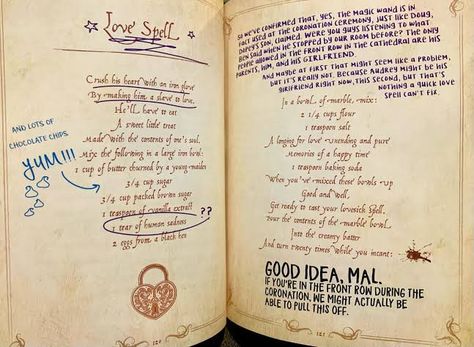 Love Spell
Crush his heart with an iron glove
By making him a slave to love.
He'll have to eat
A sweet little treat
Made with the contents of me's soul.
Mix the following in a large iron bowl:
1 cup of butter churned by a young maiden
3/4 cup sugar
3/4 cup packed brown sugar
1 teaspoon of vanilla extract
1 tear of human sadness
??
2 eggs from a black hen
AND LOTS OF
CHOCOLATE CHIPS.
YUM!!!
120
SO WE'VE CONFIRMED THAT, YES, THE MAGIC WAND IS IN
FACT USED AT THE CORONATION CEREMONY, JUST LIKE DOUG,
DOPEY'S SON, CLAIMED. WERE YOU GUYS LISTENING TO WHAT
BEN SAID WHEN HE STOPPED BY OUR ROOM BEFORE? THE ONLY
PEOPLE ALLOWED IN THE FRONT ROW IN THE CATHEDRAL ARE HIS
PARENTS, HIM, AND HIS GIRLFRIEND.
AND MAYBE AT FIRST THAT MIGHT SEEM LIKE A PROBLEM,
BUT IT'S REALLY NOT. BECAUSE AUDREY MIGHT BE HIS
GIRLFRIEND RIGHT NOW, THIS SECOND, BUT THAT'S
NOTHING A QUICK LOVE
SPELL CAN'T FIX.
In a bowl of marble, mix:
2 1/4 cups flour
1 teaspoon salt
A longing for love unending and pure
Memories of a happy time
1 teaspoon baking soda
When you've mixed these bowls up
Good and well,
Get ready to cast your lovesick spell.
Pour the contents of the marble bowl
Into the creamy batter
And turn twenty times while you incant:
GOOD IDEA, MAL.
IF YOU'RE IN THE FRONT ROW DURING THE
CORONATION, WE MIGHT ACTUALLY BE
ABLE TO PULL THIS OFF.
121